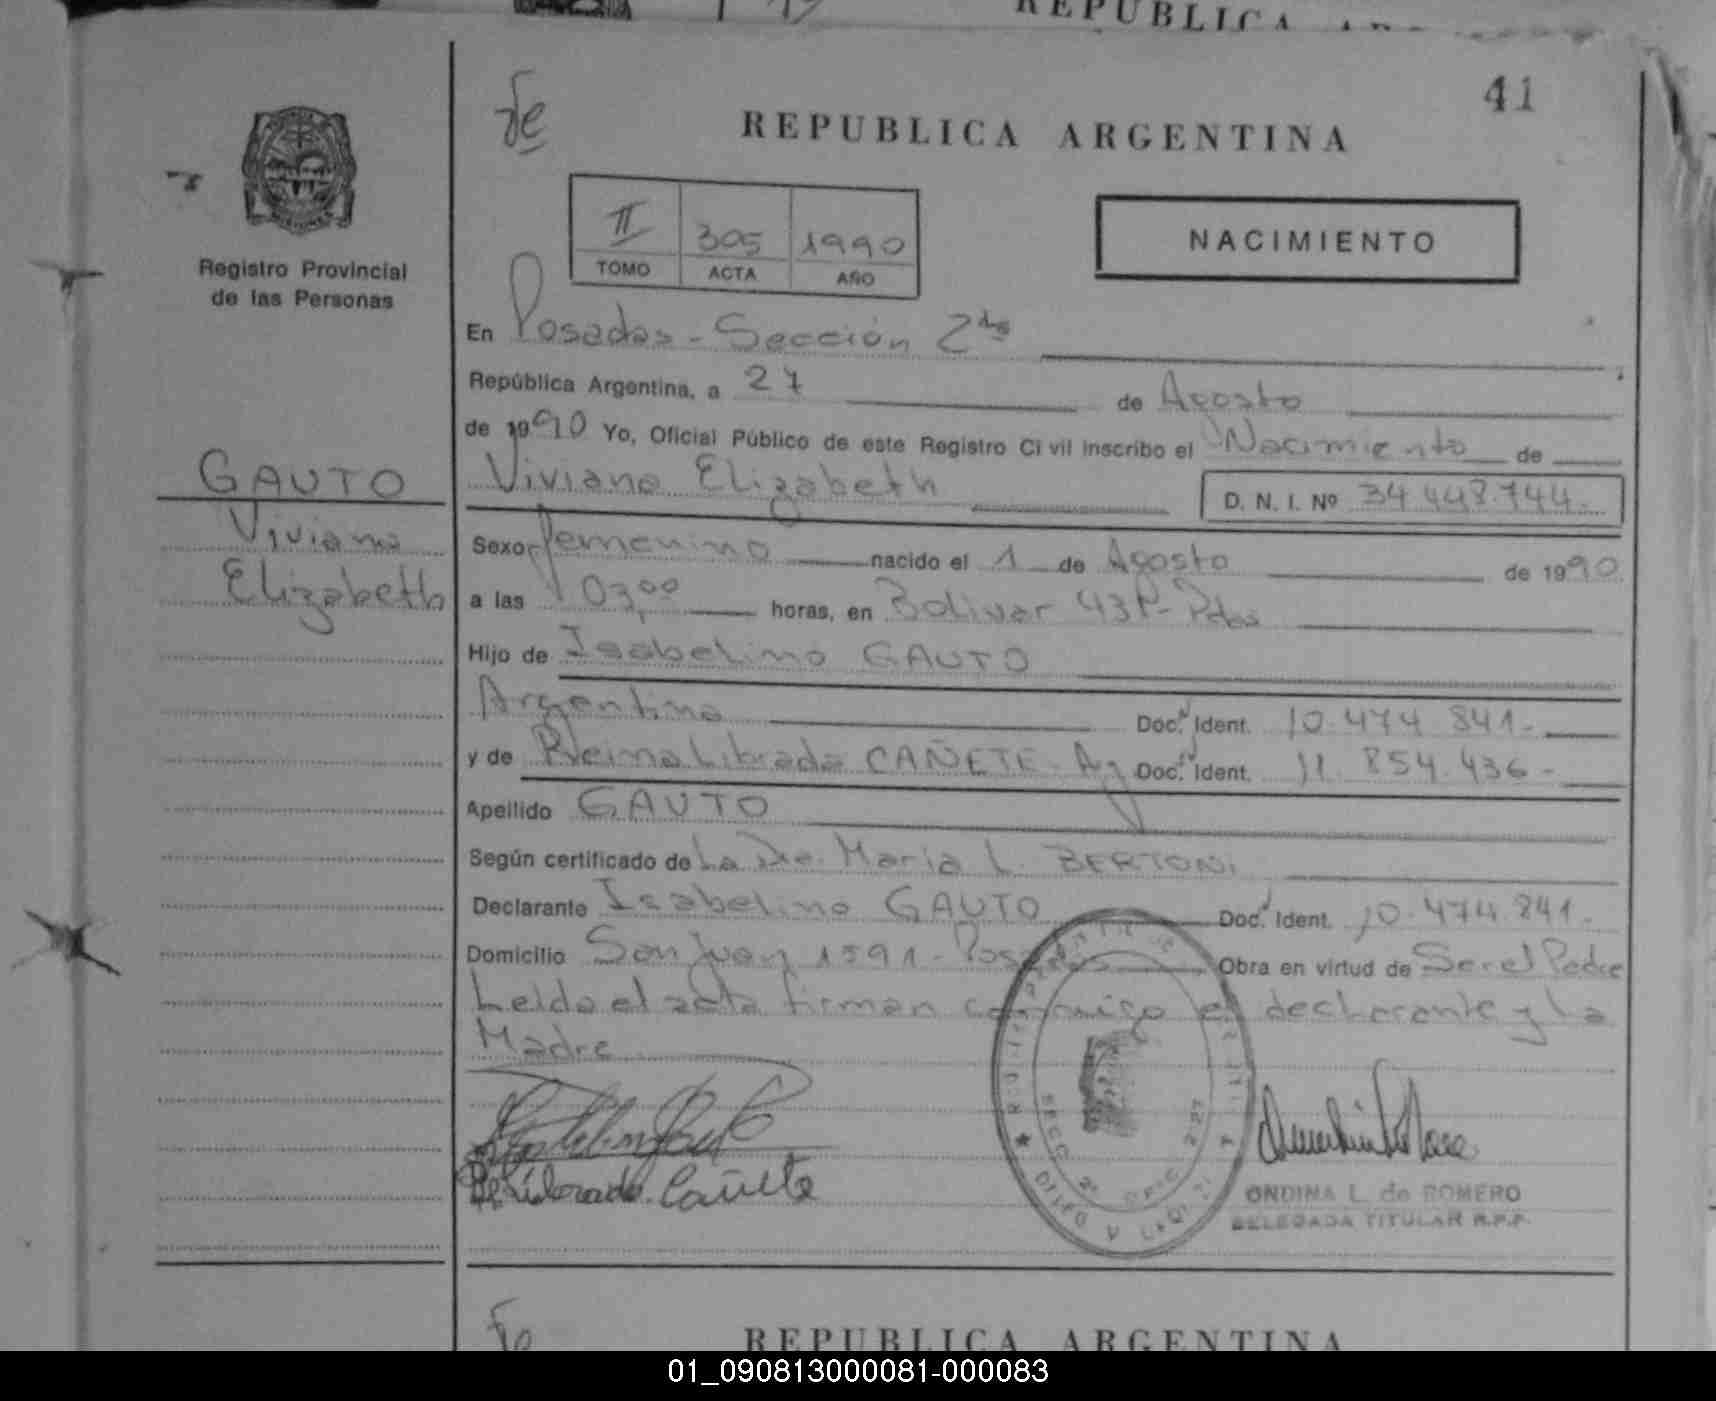 REPUBLICA
41
fe
REPUBLICA ARGENTINA
Registro Provincial
de las Personas
II 305 1990
TOMO ACTA AÑO
NACIMIENTO
En Posadas - Sección 2da
República Argentina, a 27 de Agosto
de 1990 Yo, Oficial Público de este Registro Civil inscribo el Nacimiento de
GAUTO
Viviana Elizabeth D. N. I. Nº 34.448.744.-
Viviana
Elizabeth
Sexo femenino nacido el 1 de Agosto de 1990
a las 03,00 horas, en Bolivar - Pdas
Hijo de Isabelino GAUTO
Argentino Doc. Ident. 10.474.841.-
y de Reina Librada CAÑETE - Arg Doc. Ident. 11.854.436-
Apellido GAUTO
Según certificado de La Dra. Maria L. BERTONI
Declarante Isabelino GAUTO Doc. Ident. 10.474.841.
Domicilio San Juan 1591 - Posadas Obra en virtud de Ser el Padre
Leída el acta firman conmigo el declarante y la
Madre
Cañete
SECC 2ª
ONDINA L. de ROMERO
DELEGADA TITULAR R.P.P.
fe
REPUBLICA ARGENTINA
01_090813000081-000083